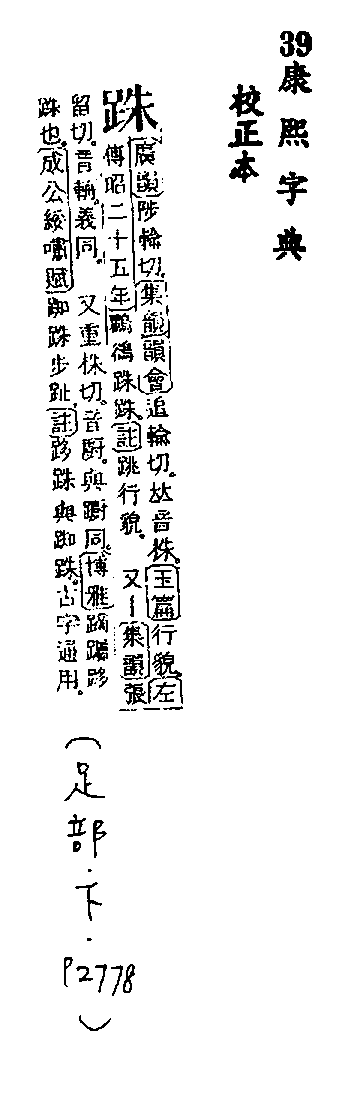 39康熙字典
校正本
跦
廣韻陟輸切。集韻韻會追輸切。𠀤音株。玉篇行貌。左
傳昭二十五年鸜鵒跦跦。註跳行貌。 又 集韻張
留切。音輈。義同。 又重株切。音廚。與躕同。博雅蹢躅跢
跦也。成公綏嘯賦踟跦步趾。註跢跦與踟跦。古字通用。
(足部.下.P2778)